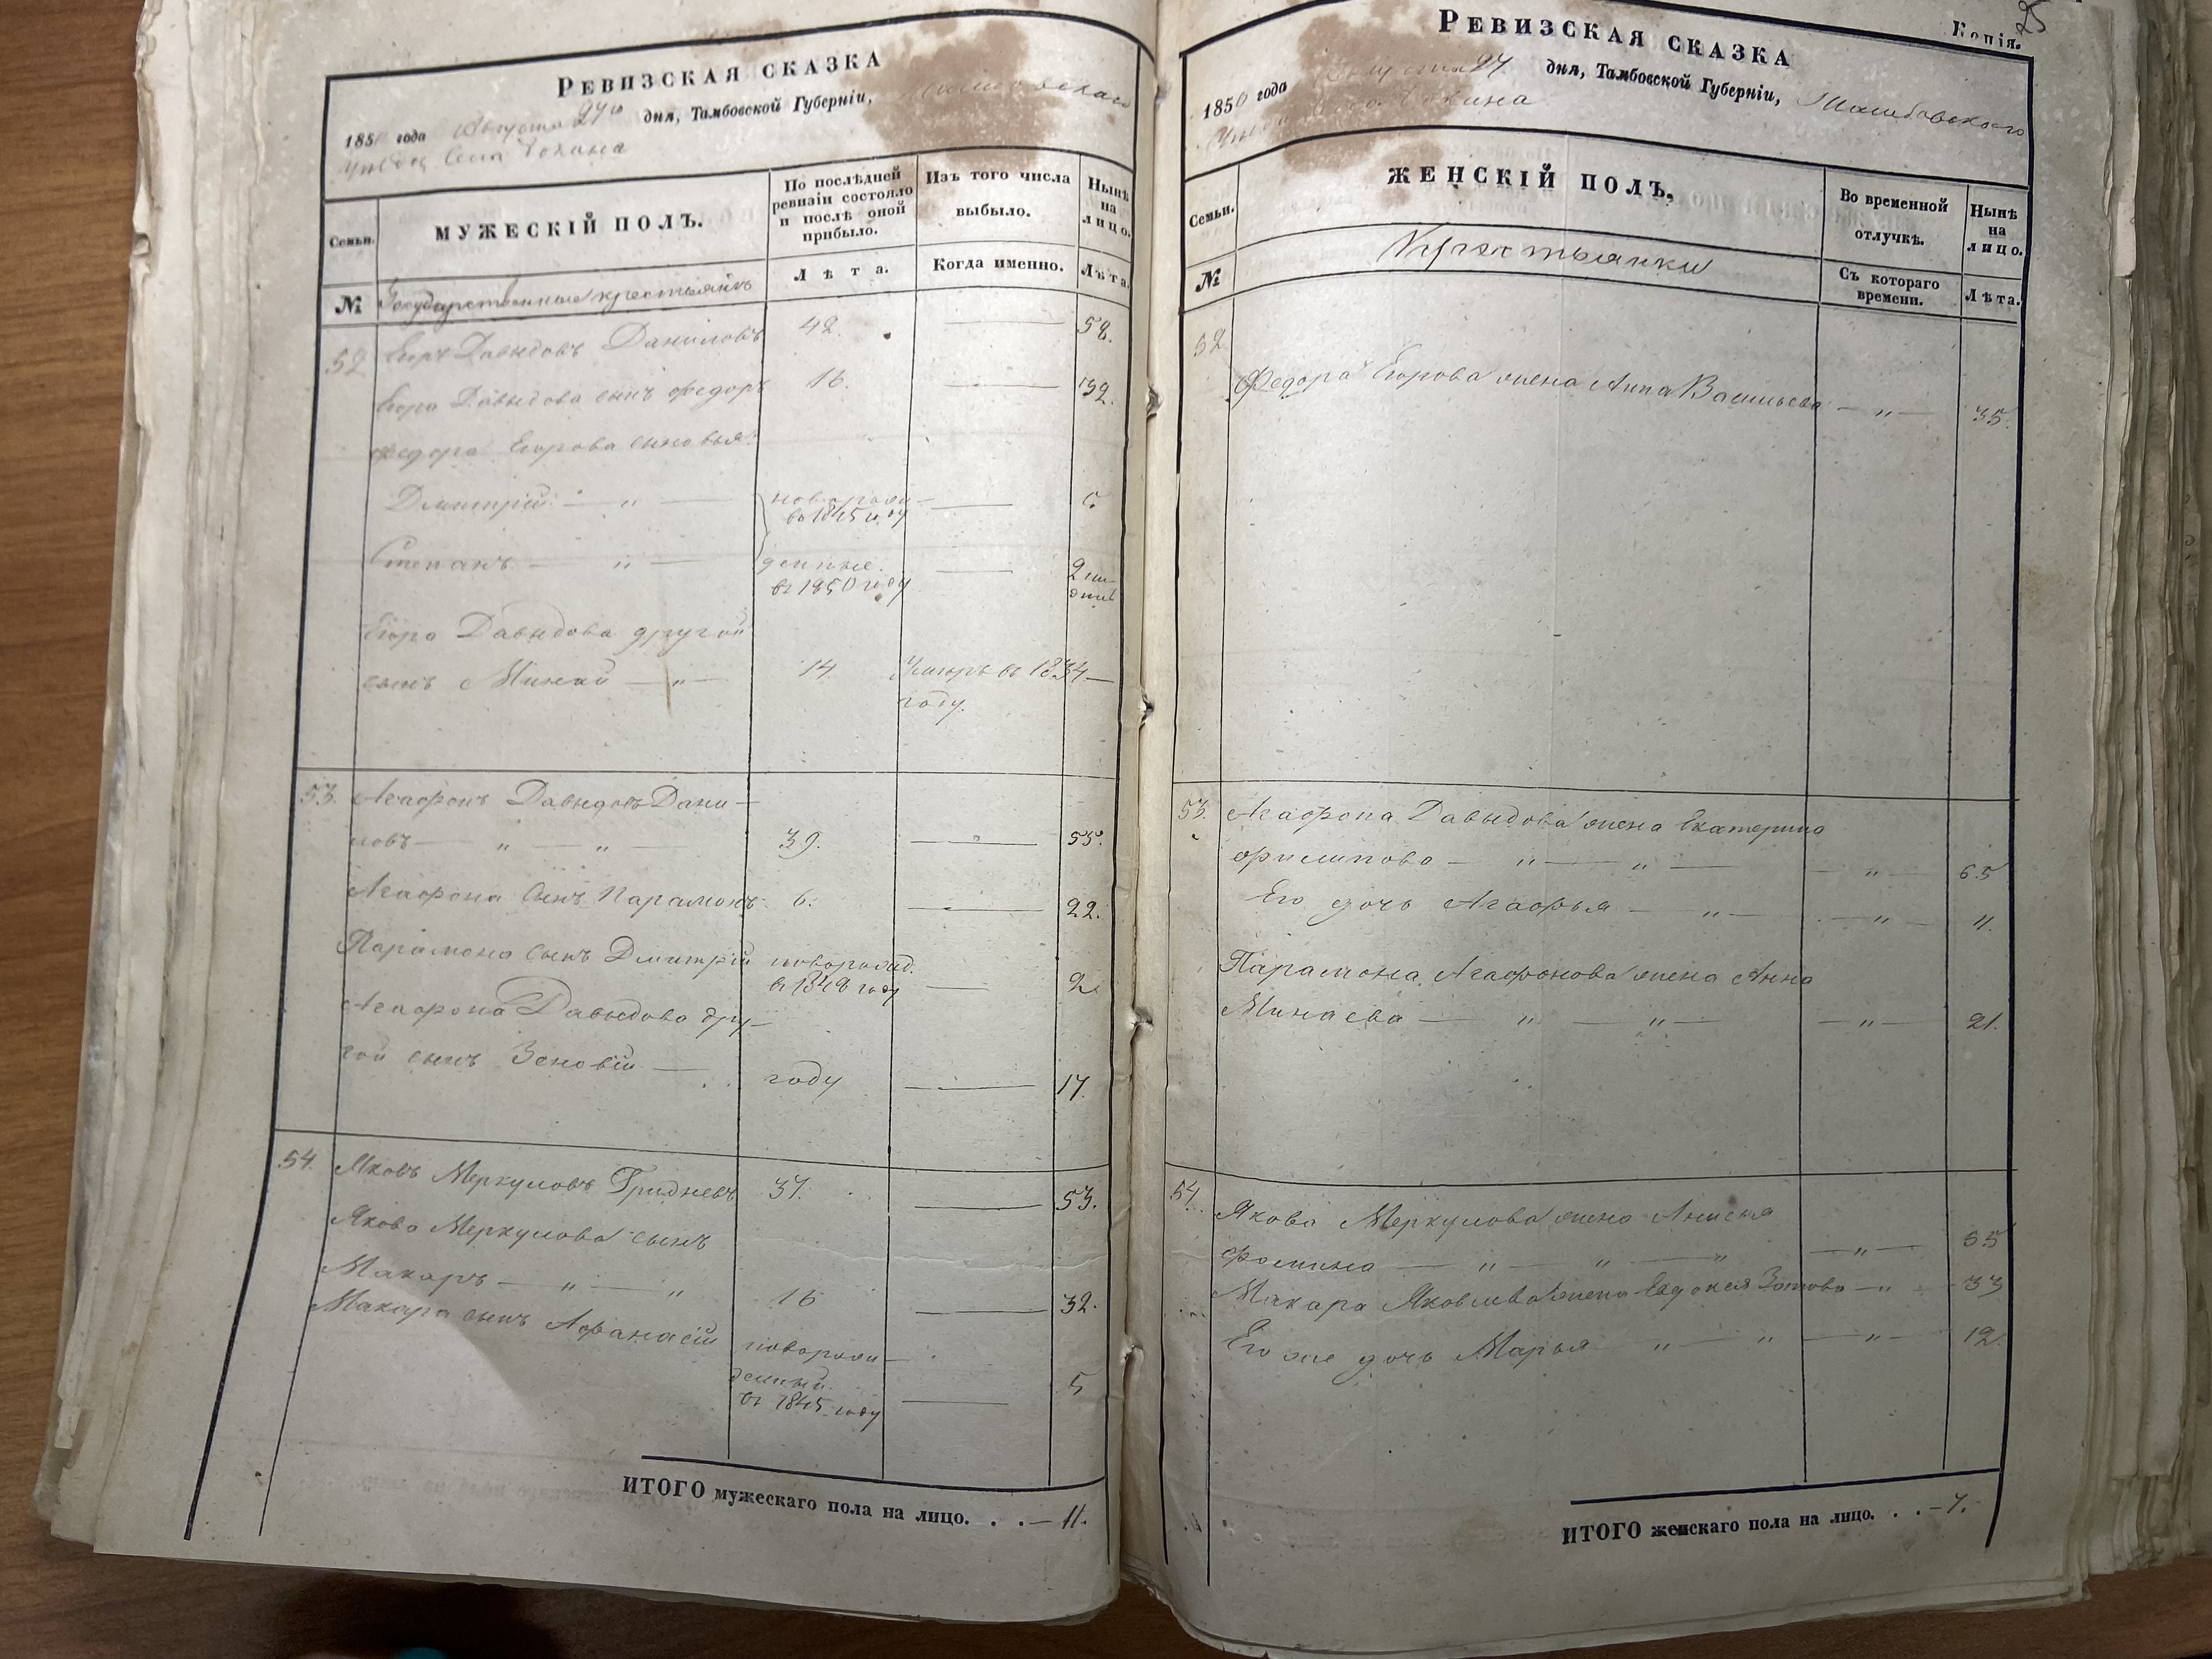 РЕВИЗСКАЯ СКАЗКА
1850 года Августа 27го дня, Тамбовской Губерніи, Тамбовскаго
уѣзда Села
Семьи.
МУЖЕСКІЙ ПОЛЪ.
По послѣдней ревизіи состояло и послѣ оной прибыло.
Изъ того числа выбыло.
Нынѣ на лицо.
№
Государственные крестьяне
Лѣта.
Когда именно.
Лѣта.
52 Егоръ Давыдовъ Даниловъ 42. — 58.
Егора Давыдова сынъ Федоръ 16. — 32.
Федора Егорова сыновья:
Дмитрій — „ — новорож- — 5
въ 1845 году
Степанъ — „ — денные. — 2 не-
въ 1850 году
Егора Давыдова другой
сынъ Минай — „ — 14. Умеръ въ 1834 —
году.
53. Агафонъ Давыдовъ Дани-
ловъ — „ — „ — 39. — 55.
Агафона сынъ Парамонъ 6. — 22.
Парамона сынъ Дмитрій новорожд. — 2
въ 1848 году
Агафона Давыдова дру-
гой сынъ Зеновій — году — 17.
54. Яковъ Меркуловъ Гридневъ 37. — 53.
Якова Меркулова сынъ
Макаръ — „ — „ 16 — 32.
Макара сынъ Афанасій новорож-
денный. — 5
въ 1845 году
ИТОГО мужескаго пола на лицо. . . — 11.
25
Копія.
РЕВИЗСКАЯ СКАЗКА
1850 года Августа 27 дня, Тамбовской Губерніи, Тамбовскаго
Семьи.
ЖЕНСКІЙ ПОЛЪ.
Во временной отлучкѣ.
Нынѣ на лицо.
№
Крестьянки
Съ котораго времени.
Лѣта.
52
Федора Егорова жена Анна Васильева — „ — 35.
53. Агафона Давыдова жена Екатерина
Филипова — „ — „ — „ — 65
Его дочь Агафья — „ — „ — 11.
Парамона Агафонова жена Анна
Минаева — „ — „ — „ — 21.
54. Якова Меркулова жена Анисья
Фомина — „ — „ — „ — „ — 55
Макара Яковлева жена Евдокея Зотова — „ — 33
Его же дочь Марья „ — „ — „ — 12.
ИТОГО женскаго пола на лицо. . . — 7.